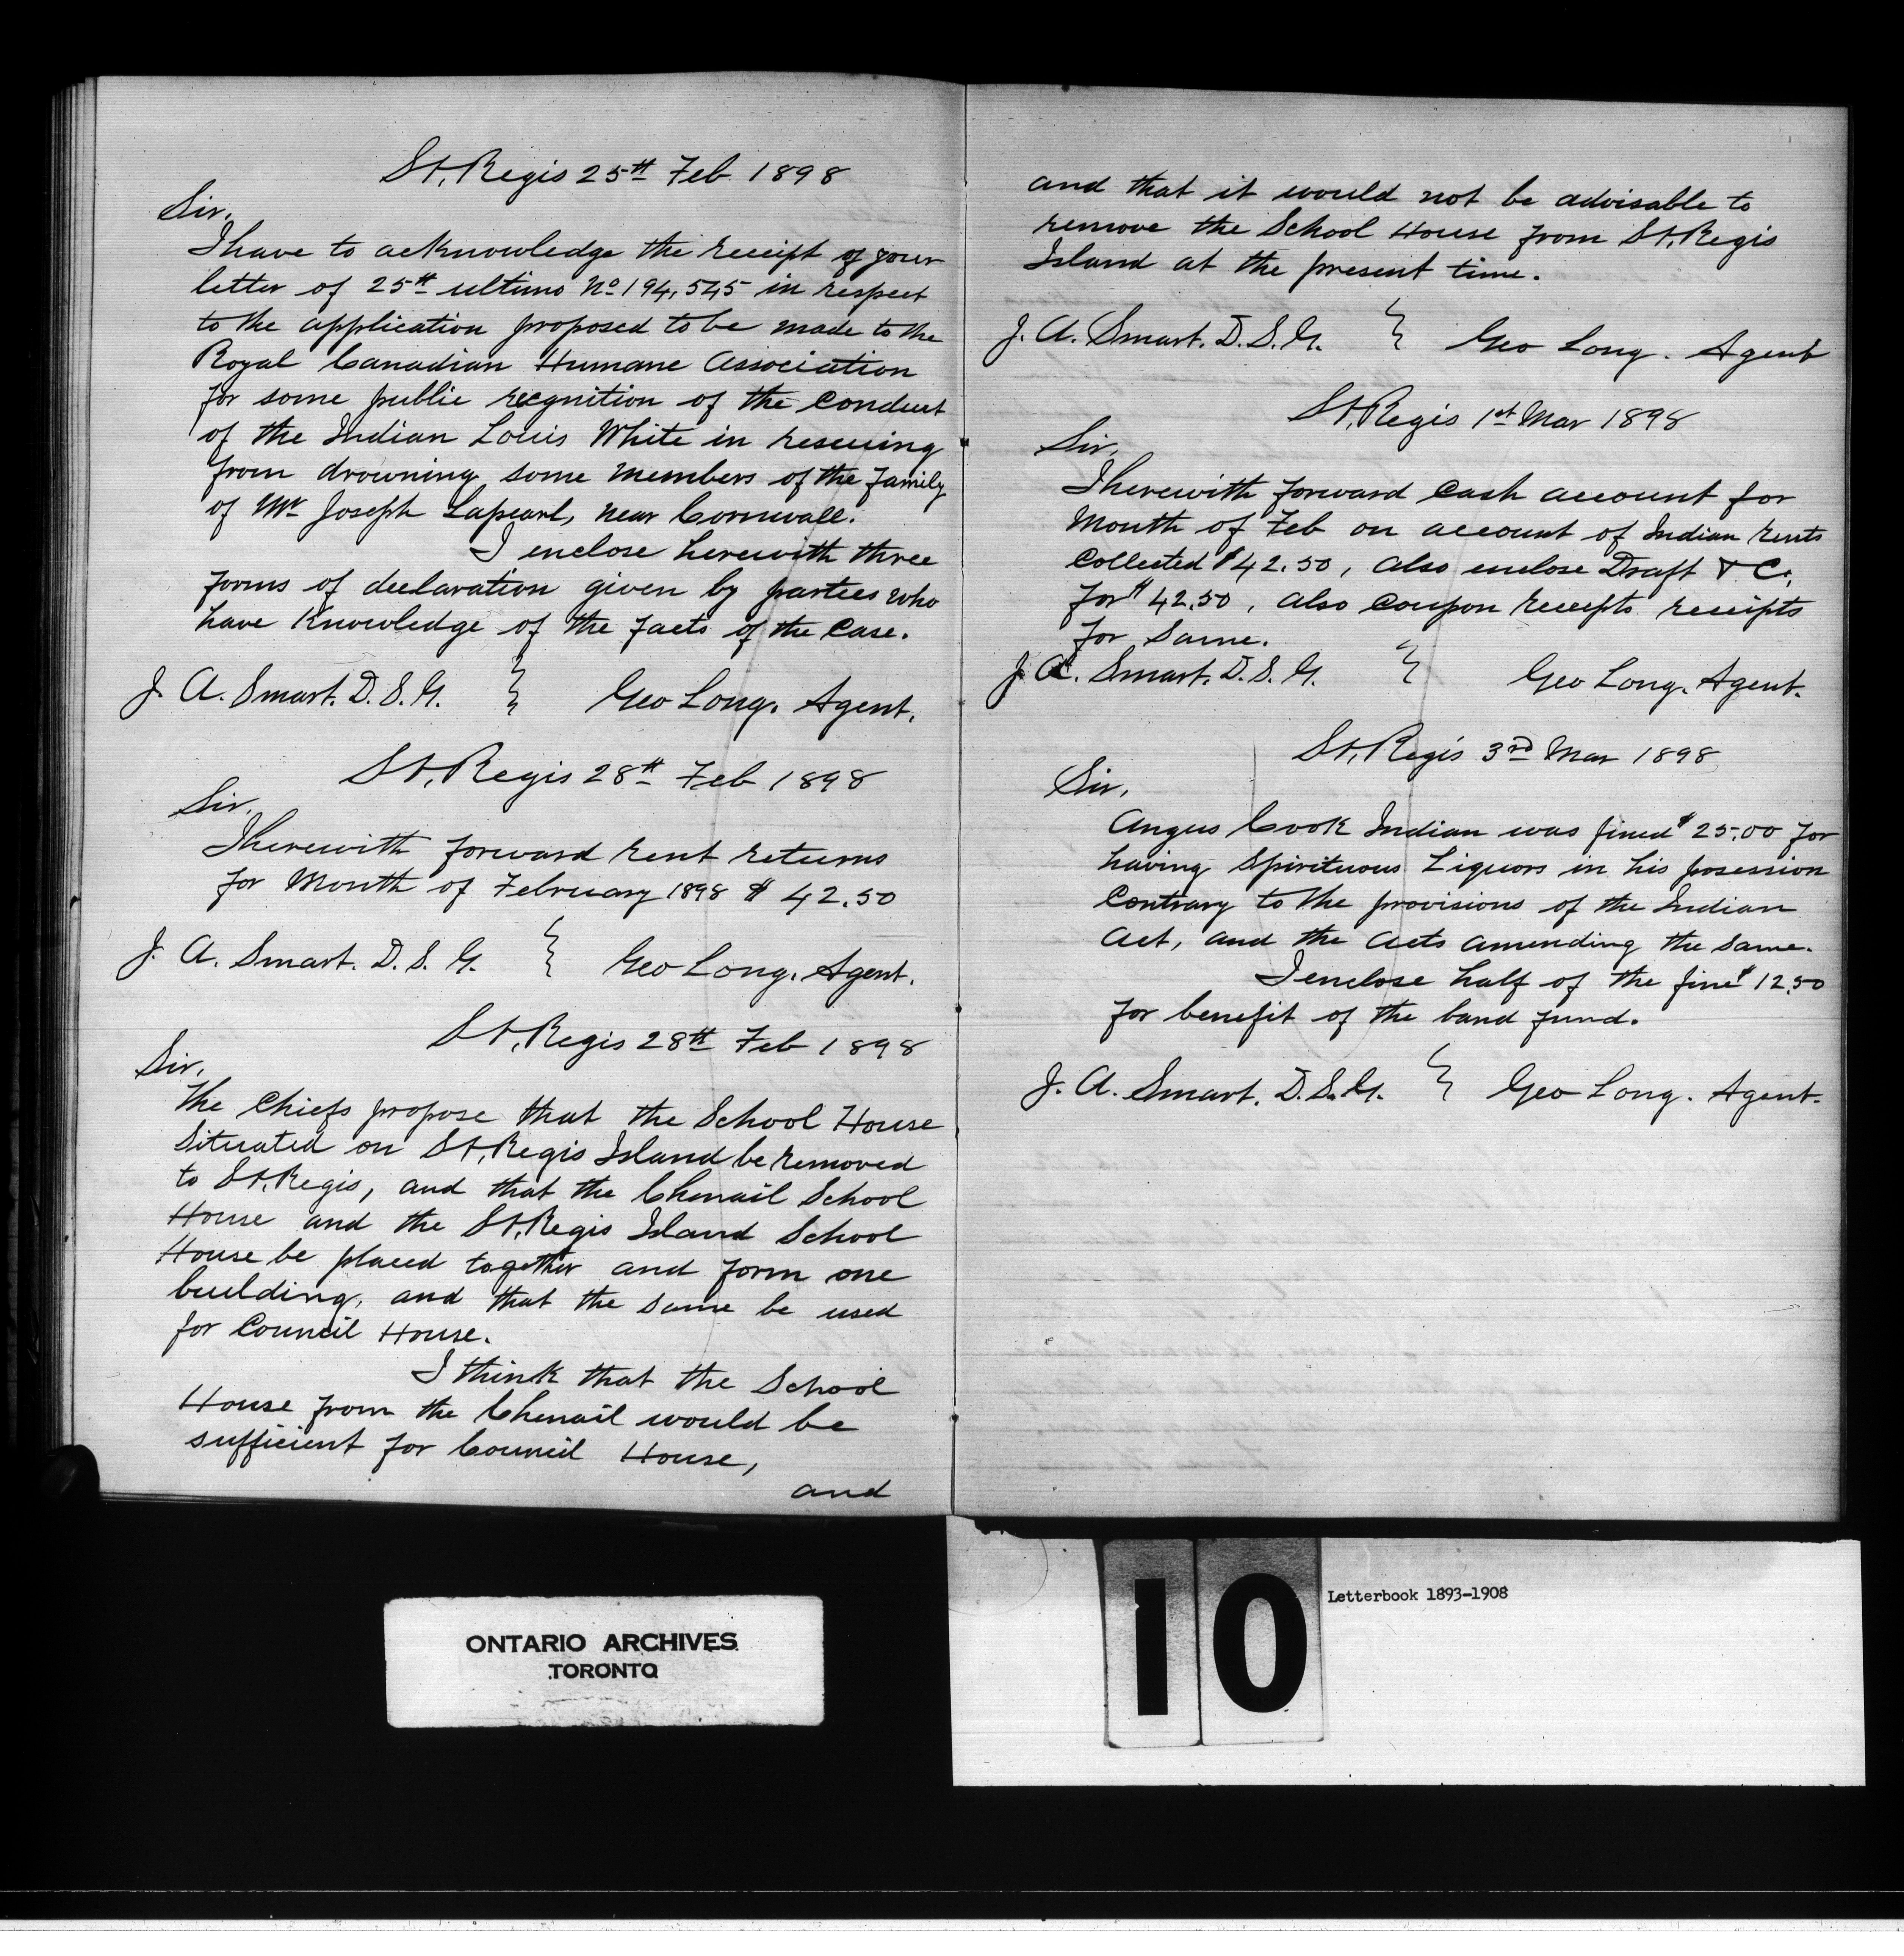 St, Regis 25th Feb 1898
Sir,
I have to acknowledge the receipt of your
letter of 25th ultimo No 194,545 in respect
to the application proposed to be made to the
Royal Canadian Humane Association
for some public recgnition of the Conduct
of the Indian Louis White in rescuing
from drowning some members of the family
of Mr Joseph Lapearl, near Cornwall.
I enclose herewith three
forms of declaration given by parties who
have Knowledge of the facts of the Case.
J. A. Smart. D. S. G. } Geo Long. Agent.
St, Regis 28th Feb 1898
Sir,
I herewith forward rent returns
for Month of February 1898 $ 42.50
J. A. Smart. D. S. G. } Geo Long. Agent.
St, Regis 28th Feb 1898
Sir,
The Chiefs propose that the School House
Situated on St, Regis Island be removed
to St. Regis, and that the Chenail School
House and the St, Regis Island School
House be placed together and form one
building, and that the same be used
for Council House.
I think that the School
House from the Chenail would be
sufficient for Council House,
and
and that it would not be advisable to
remove the School House from St, Regis
Island at the present time.
J. A. Smart. D. S. G. } Geo Long. Agent
St, Regis 1st Mar 1898
Sir,
I herewith forward Cash account for
Month of Feb on account of Indian rents
Collected $42.50, also enclose Draft & C,
for $42.50, also Coupon receipts receipts
for same.
J. A. Smart. D. S. G. } Geo Long. Agent.
St, Regis 3rd Mar 1898
Sir,
Angus Cook Indian was fined $25.00 for
having Spirituous Liquors in his posession
Contrary to the provisions of the Indian
Act, and the acts amending the same.
I enclose half of the fine $12.50
for benefit of the band fund.
J. A. Smart. D. S. G. } Geo Long. Agent.
ONTARIO ARCHIVES
TORONTO
10
Letterbook 1893-1908